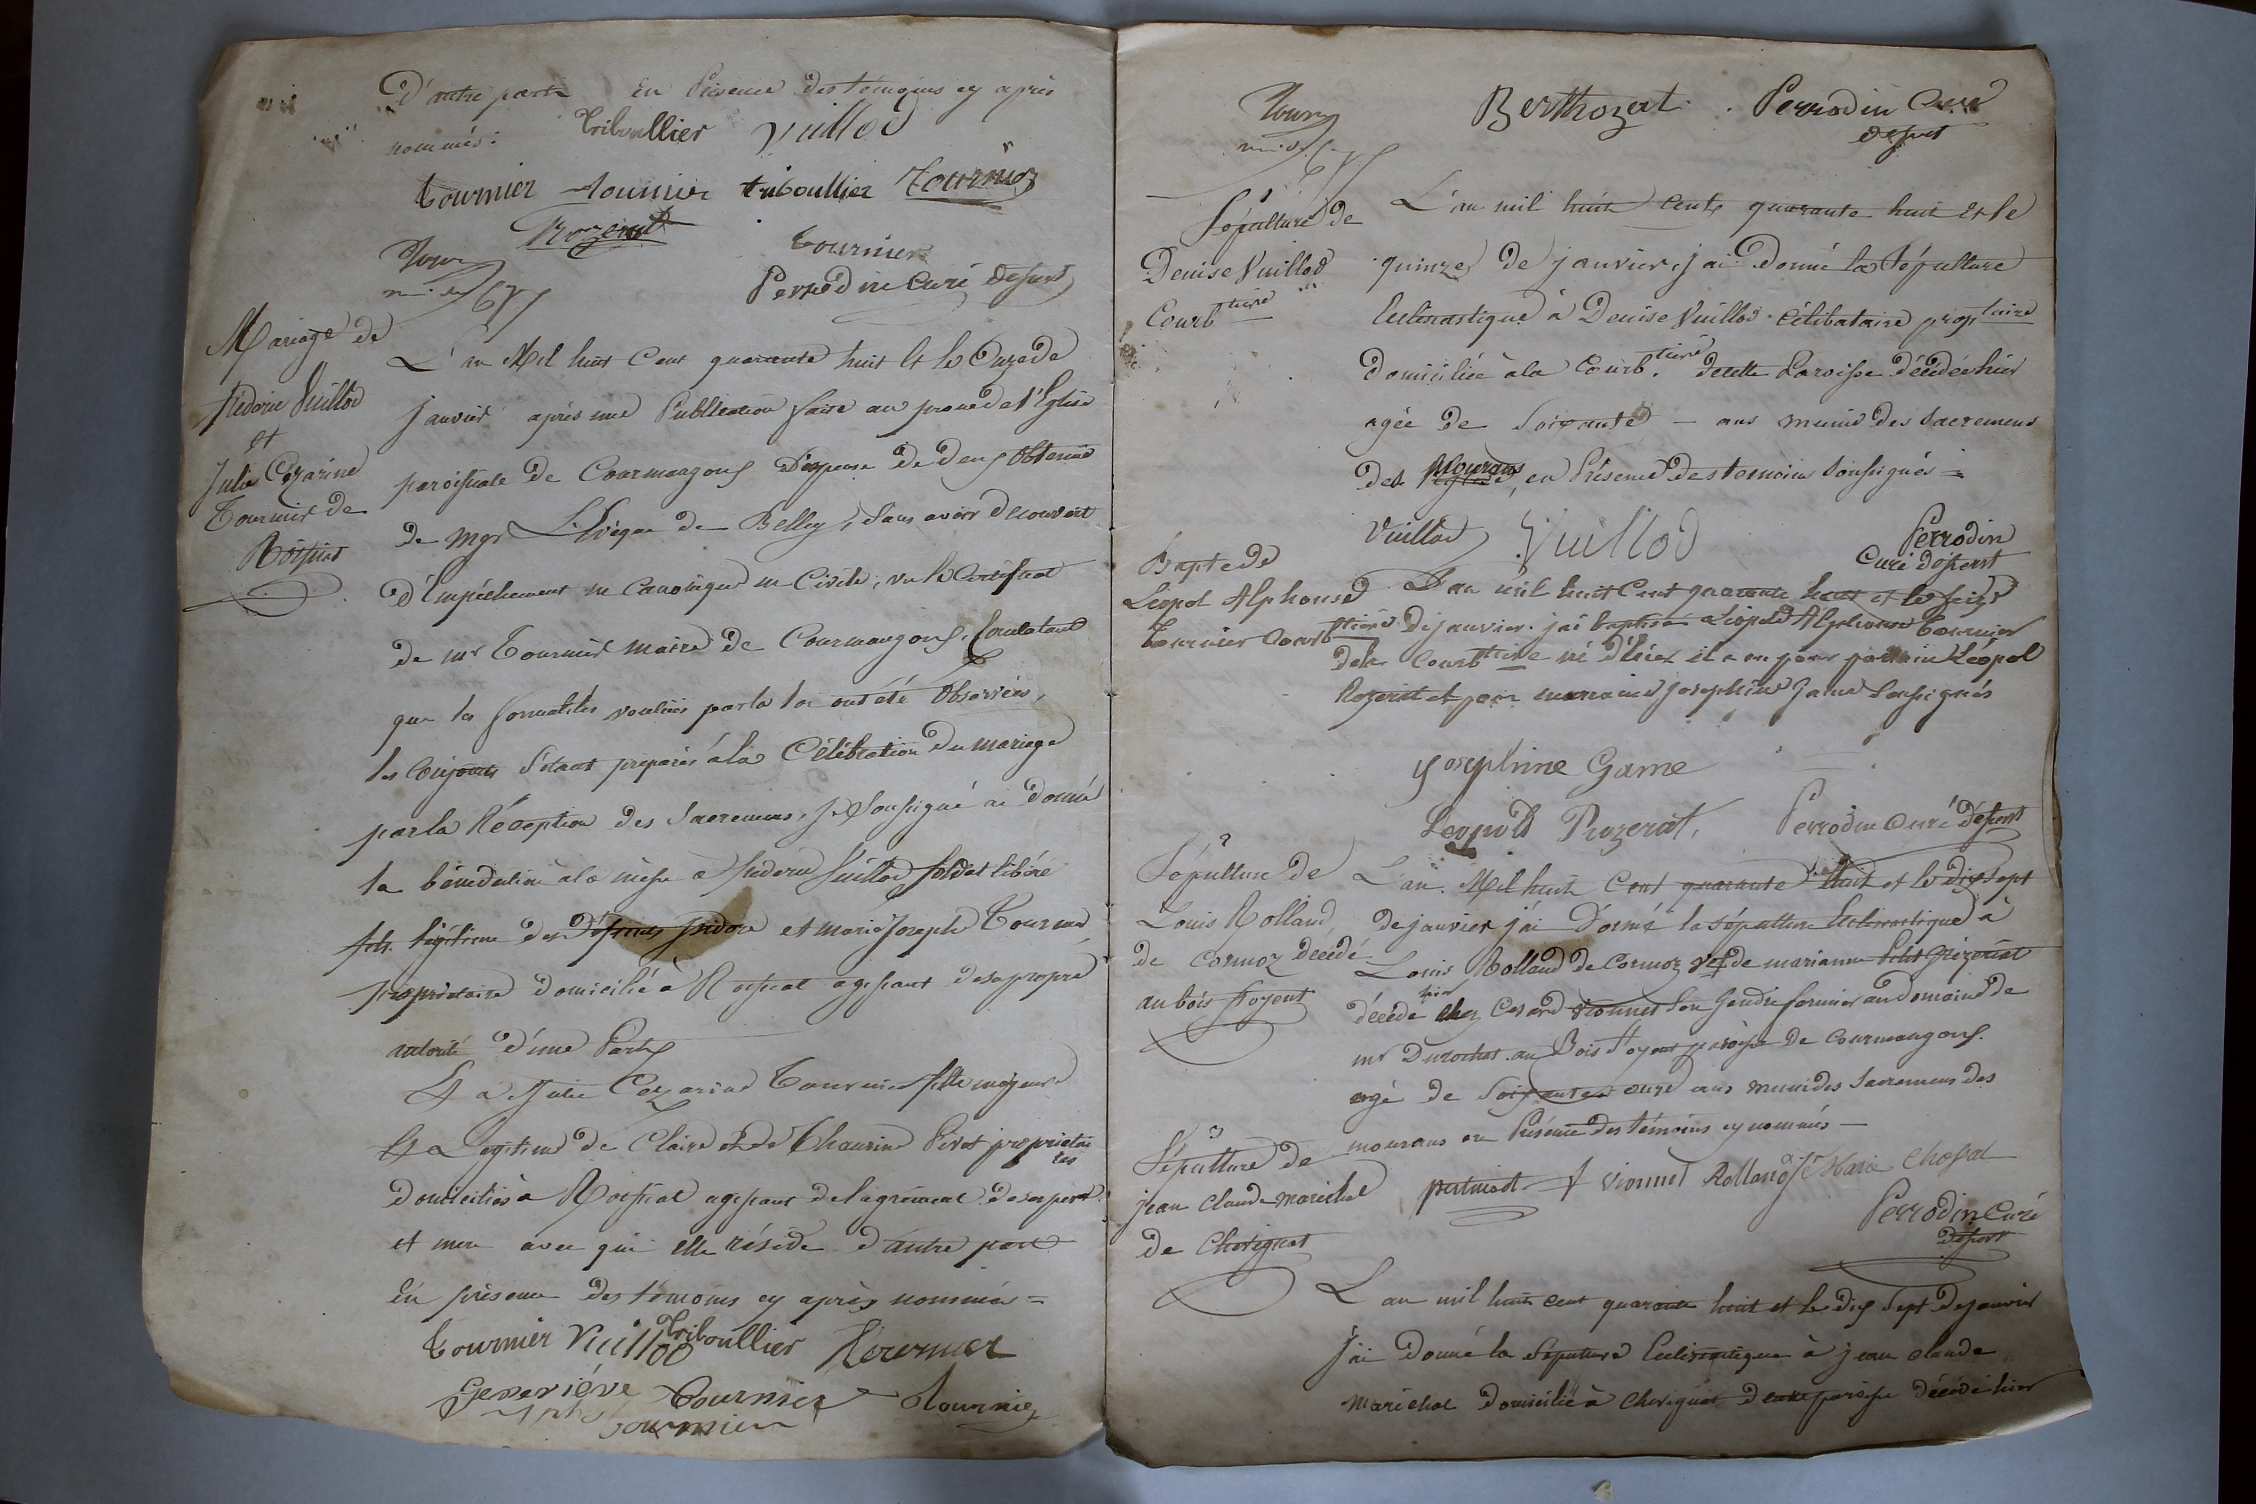 D'autre part en Présence des témoins cy après
nommés. Triboullier Vuillod
Tournier Tournier triboullier Tournier
Rozerat
Tournier
Perrodin Curé desert
Mariage de
Isidore Vuillod
et
Julie Cezarine
Tournier de
Roissiat
L'an Mil huit Cent quarante huit et le Onze de
janvier après une Publication faite au prone de l'Eglise
paroissiale de Courmangoux Dispense de deux Obtenue
de mgr L'Evêque de Belley, sans avoir découvert
d'Empêchement ni Canonique ni Civile, vu le Certificat
de mr Tournier maire de Courmangoux, Constatant
que les formalités voulues par la loi ont été Observées,
les Conjoints s'étant préparés à la Célébration du mariage
par la Réception des Sacremens, je Soussigné ai Donné
la bénédiction à la messe à Isidore Vuillod soldat libéré
fils légitime des Défunts Isidore et marie Joseph Tournier
propriétaire domicilié à Roissiat agissant de sa propre
autorité d'une Part
Et à Julie Cezarine Tournier fille majeure
et Légitime de Claire et de Thaurin Pivet proprietai
res
domiciliés à Roissiat agissant de l'agrément de ses pere
et mere avec qui elle réside d'autre part
En présence des témoins cy après nommés =
Tournier Vuillod Triboullier
Geneviéve Tournier Tournier
Tournier
Berthozat. Perrodin Curé
desert
Sépulture de
Denise Vuillod
Courb tière
L'an mil huit cent quarante huit et le
quinze de janvier, j'ai Donné la Sépulture
Ecclésiastique à Denise Vuillod célibataire prop taire
Domiciliée à la Courb. tière de cette Paroisse décédée hier
agée de Soixante — ans munie des Sacremens
des Mourans, en Présence des temoins soussignés =
Vuillod Vuillod Perrodin
Curé d'eserst
Bapte de
Léopol Alphonse
Tournier Courb tière
L'an mil huit Cent quarante huit et le seize
De janvier. j'ai baptisé Léopold Alphonse Tournier
de la Courb tière né d'hier il a eu pour parrain Léopol
Rozerat et pour marraine Josephine Game Soussignés
Josephine Game
Leopold Rozerat, Perrodin Curé désert
Sépulture de
Louis Rolland
de Cormoz décédé
au bois foyent
L'an Mil huit Cent quarante huit et le dix sept
de janvier j'ai Donné la Sépulture Ecclésiastique à
Louis Rolland de Cormoz vef de marianne
décédé hier chez Cesard vionnet son Gendre fermier au Domaine de
mr Durochat au Bois foyent paroisse de Courmangoux.
agé de Soixante onze ans muni des Sacremens des
mourans en Présence des témoins cy nommés —
vionnet Rolland Marie
Perrodin Curé
Désert
Sépulture de
jean Claude maréchal
de Chevignat
L'an mil huit cent quarante huit et le dix Sept de janvier
j'ai Donné la Sépulture Ecclésiastique à jean claude
maréchal Domicilié à Chevignat de cette paroisse décédé hier